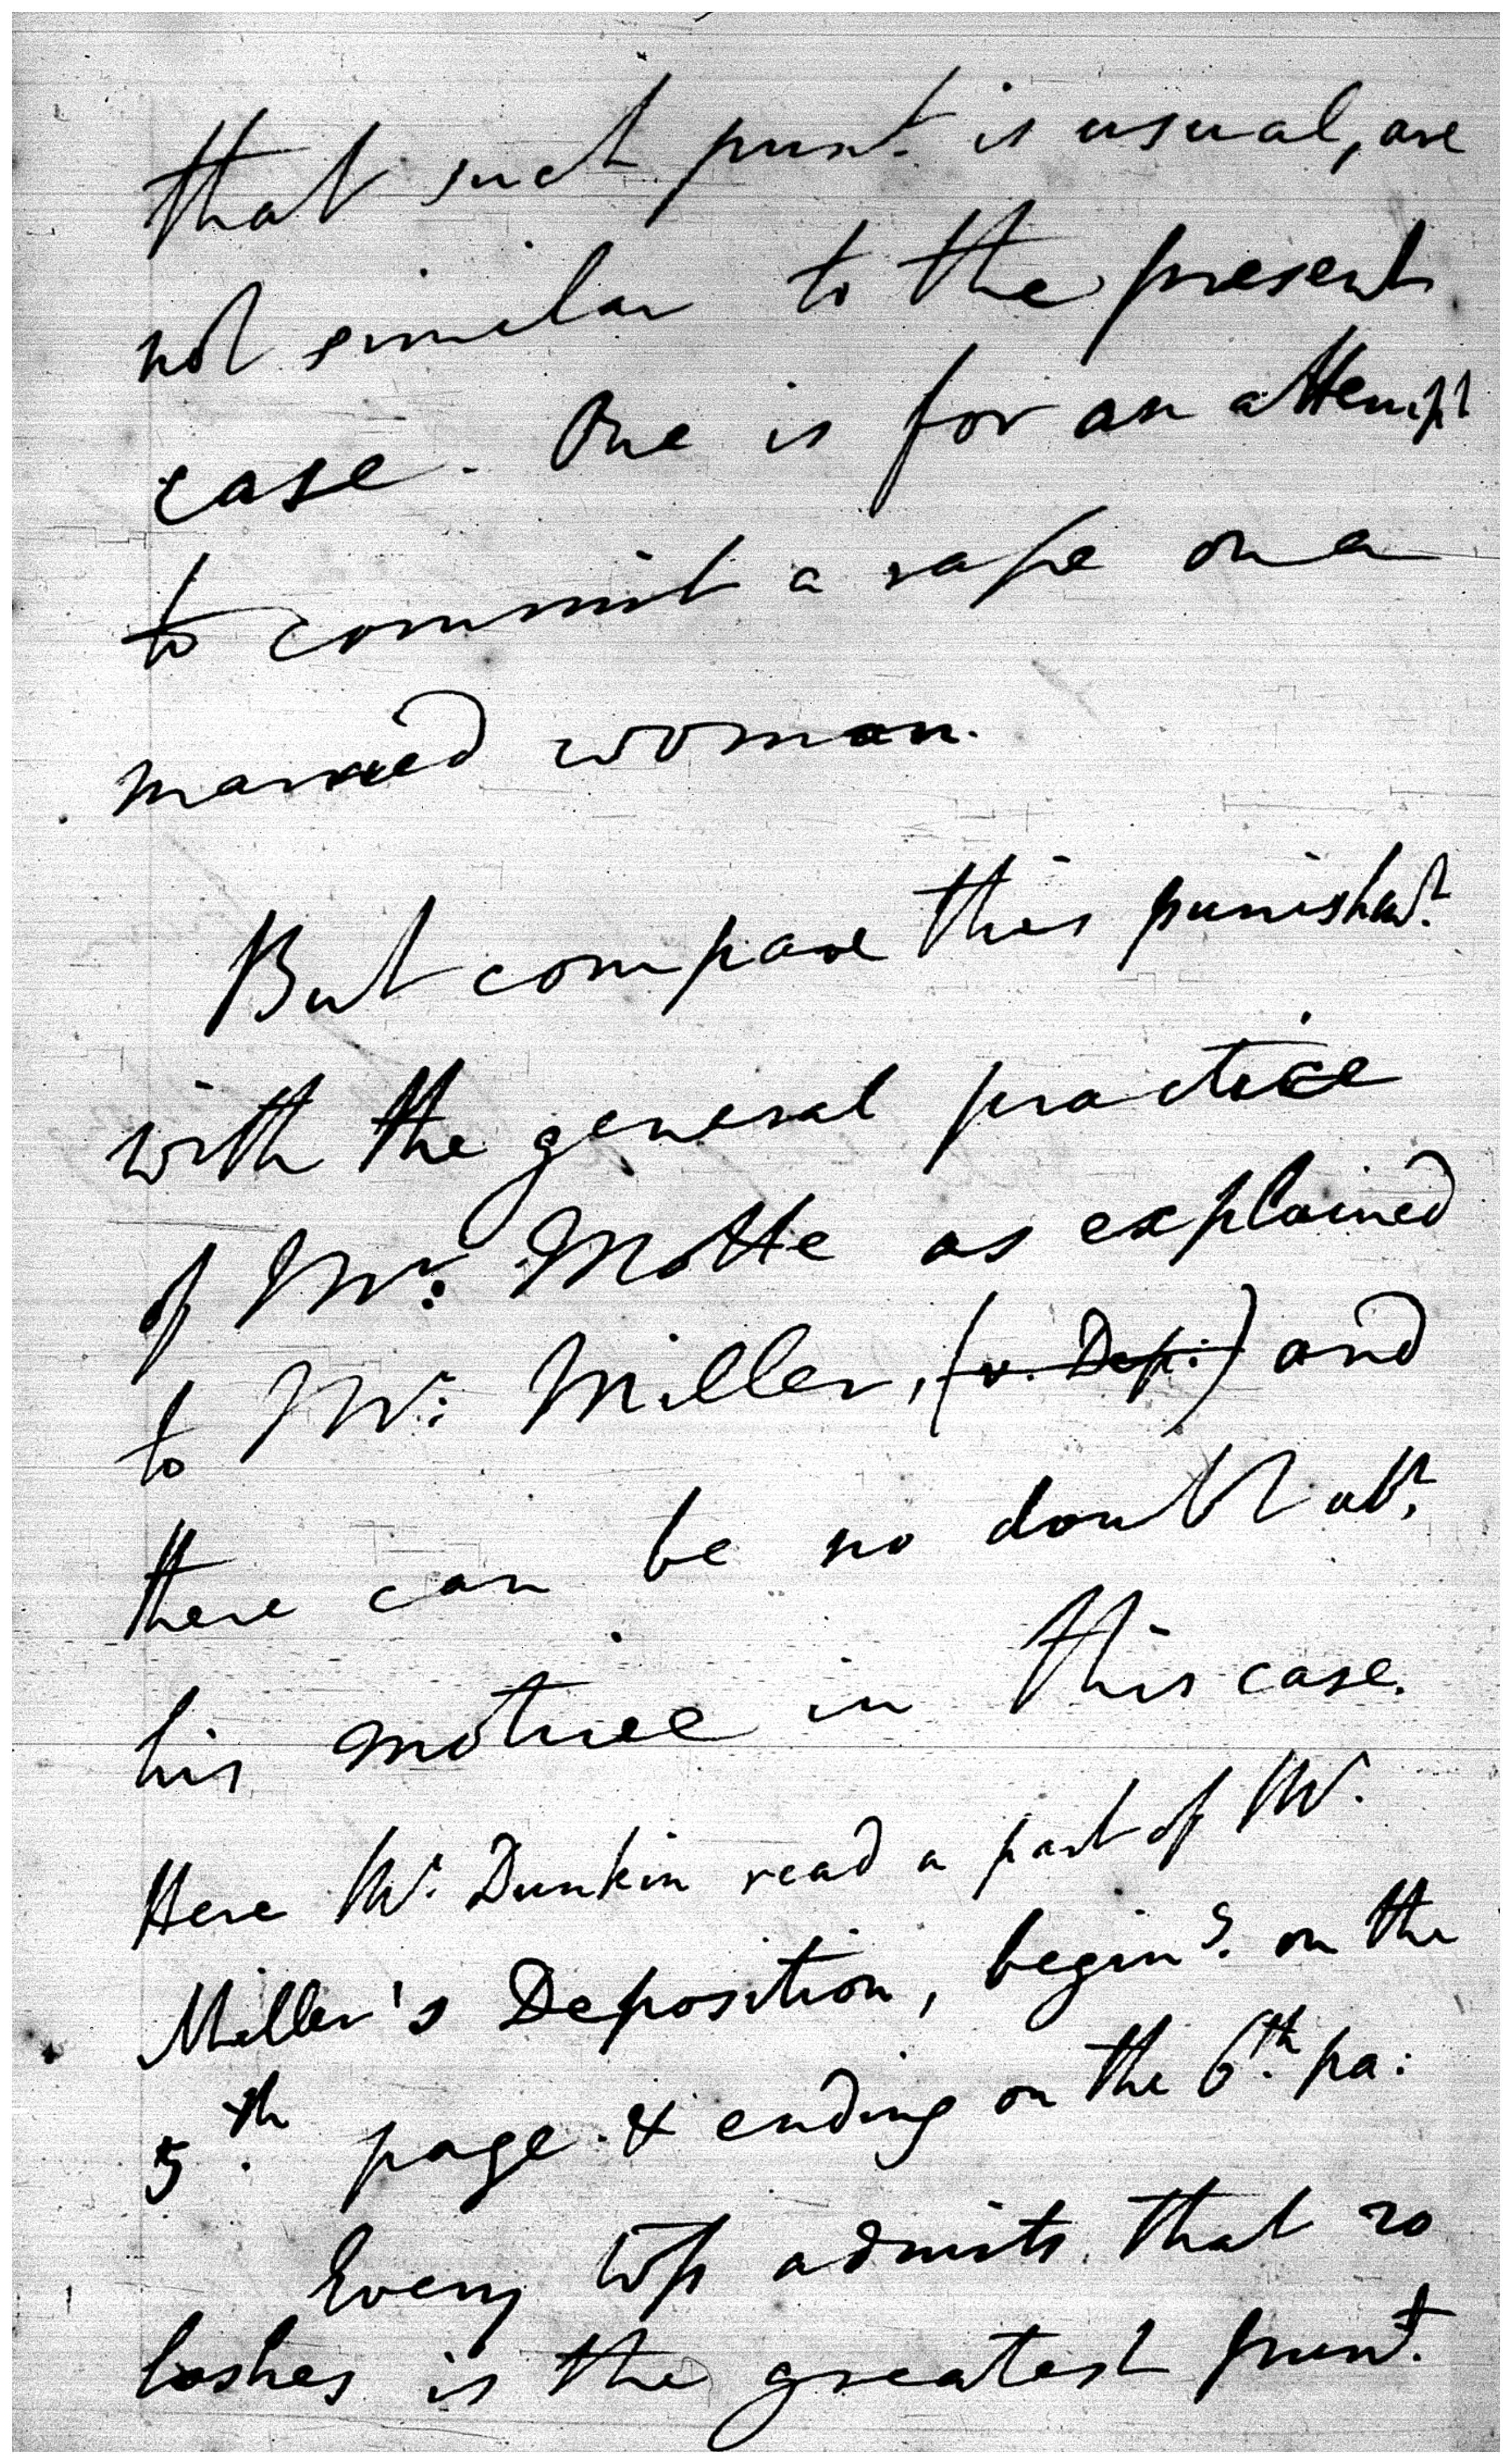 that such punt. is usual, are
not similar to the present
case. One is for an attempt
to commit a rape on a
married woman.
But compare this punishmt.
with the general practice
of Mr: Motte as explained
to Mr: Miller, (v. Dep:) and
there can be no doubt abt.
his motive in this case.
Here Mr. Dunkin read a part of Mr.
Miller's Deposition, begings. on the
5th. page. & ending on the 6th. pa:
Every admits that 20
lashes is the greatest punt.